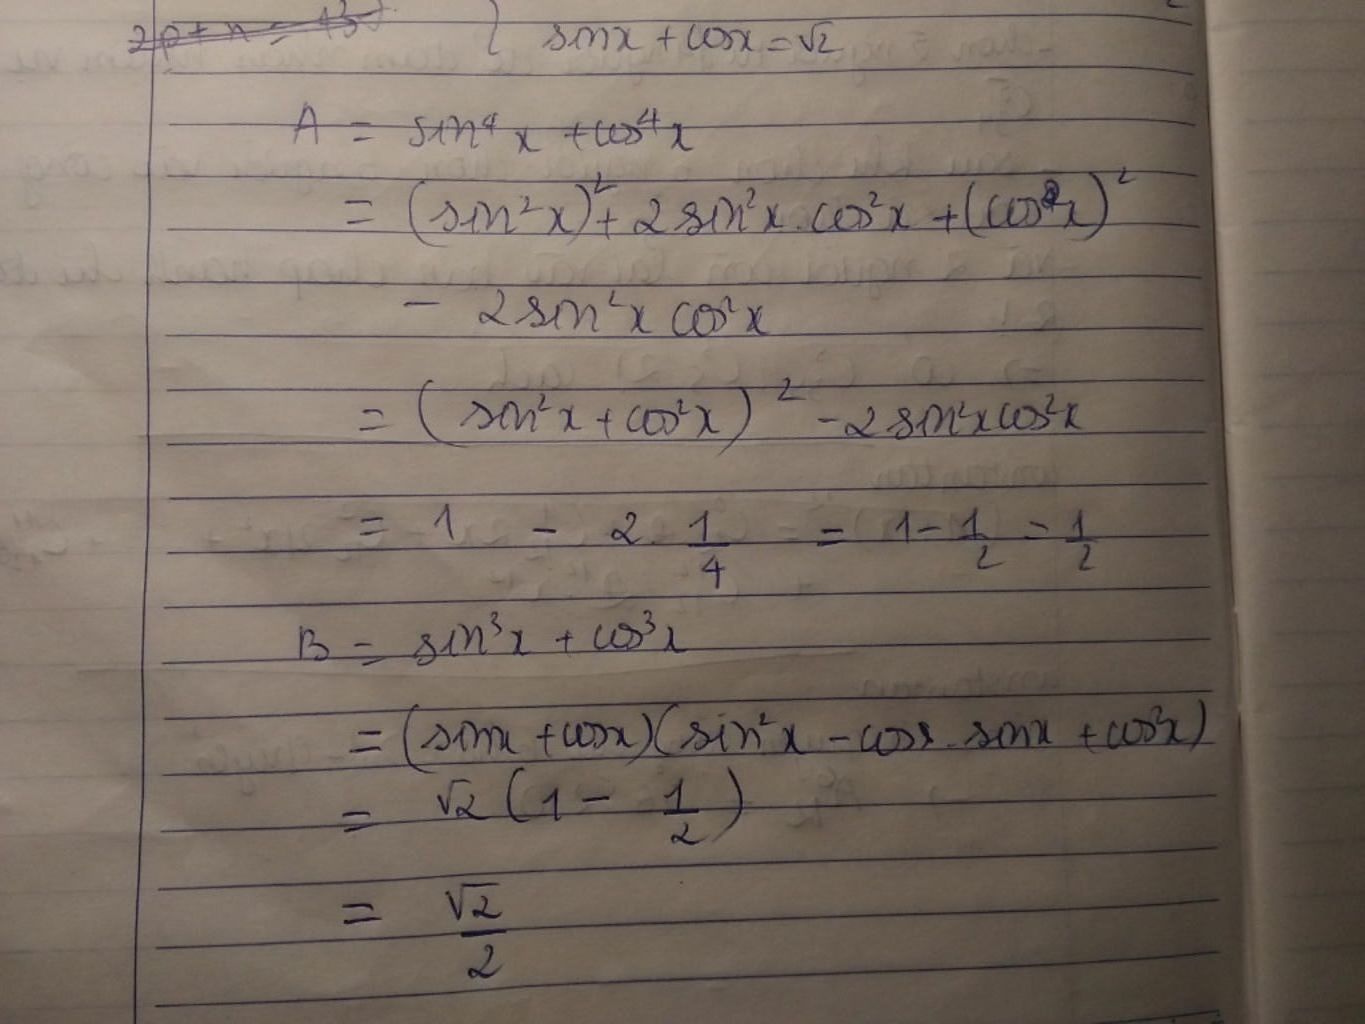 2p + n = 
{ sinx + cosx = √2
A = sin⁴x + cos⁴x
= (sin²x)² + 2sin²x.cos²x + (cos²x)²
- 2sin²x cos²x
= (sin²x + cos²x)² - 2sin²xcos²x
= 1 - 2 1/4 = 1 - 1/2 = 1/2
B = sin³x + cos³x
= (sinx + cosx)(sin²x - cosx.sinx + cos²x)
= √2 (1 - 1/2)
= √2/2